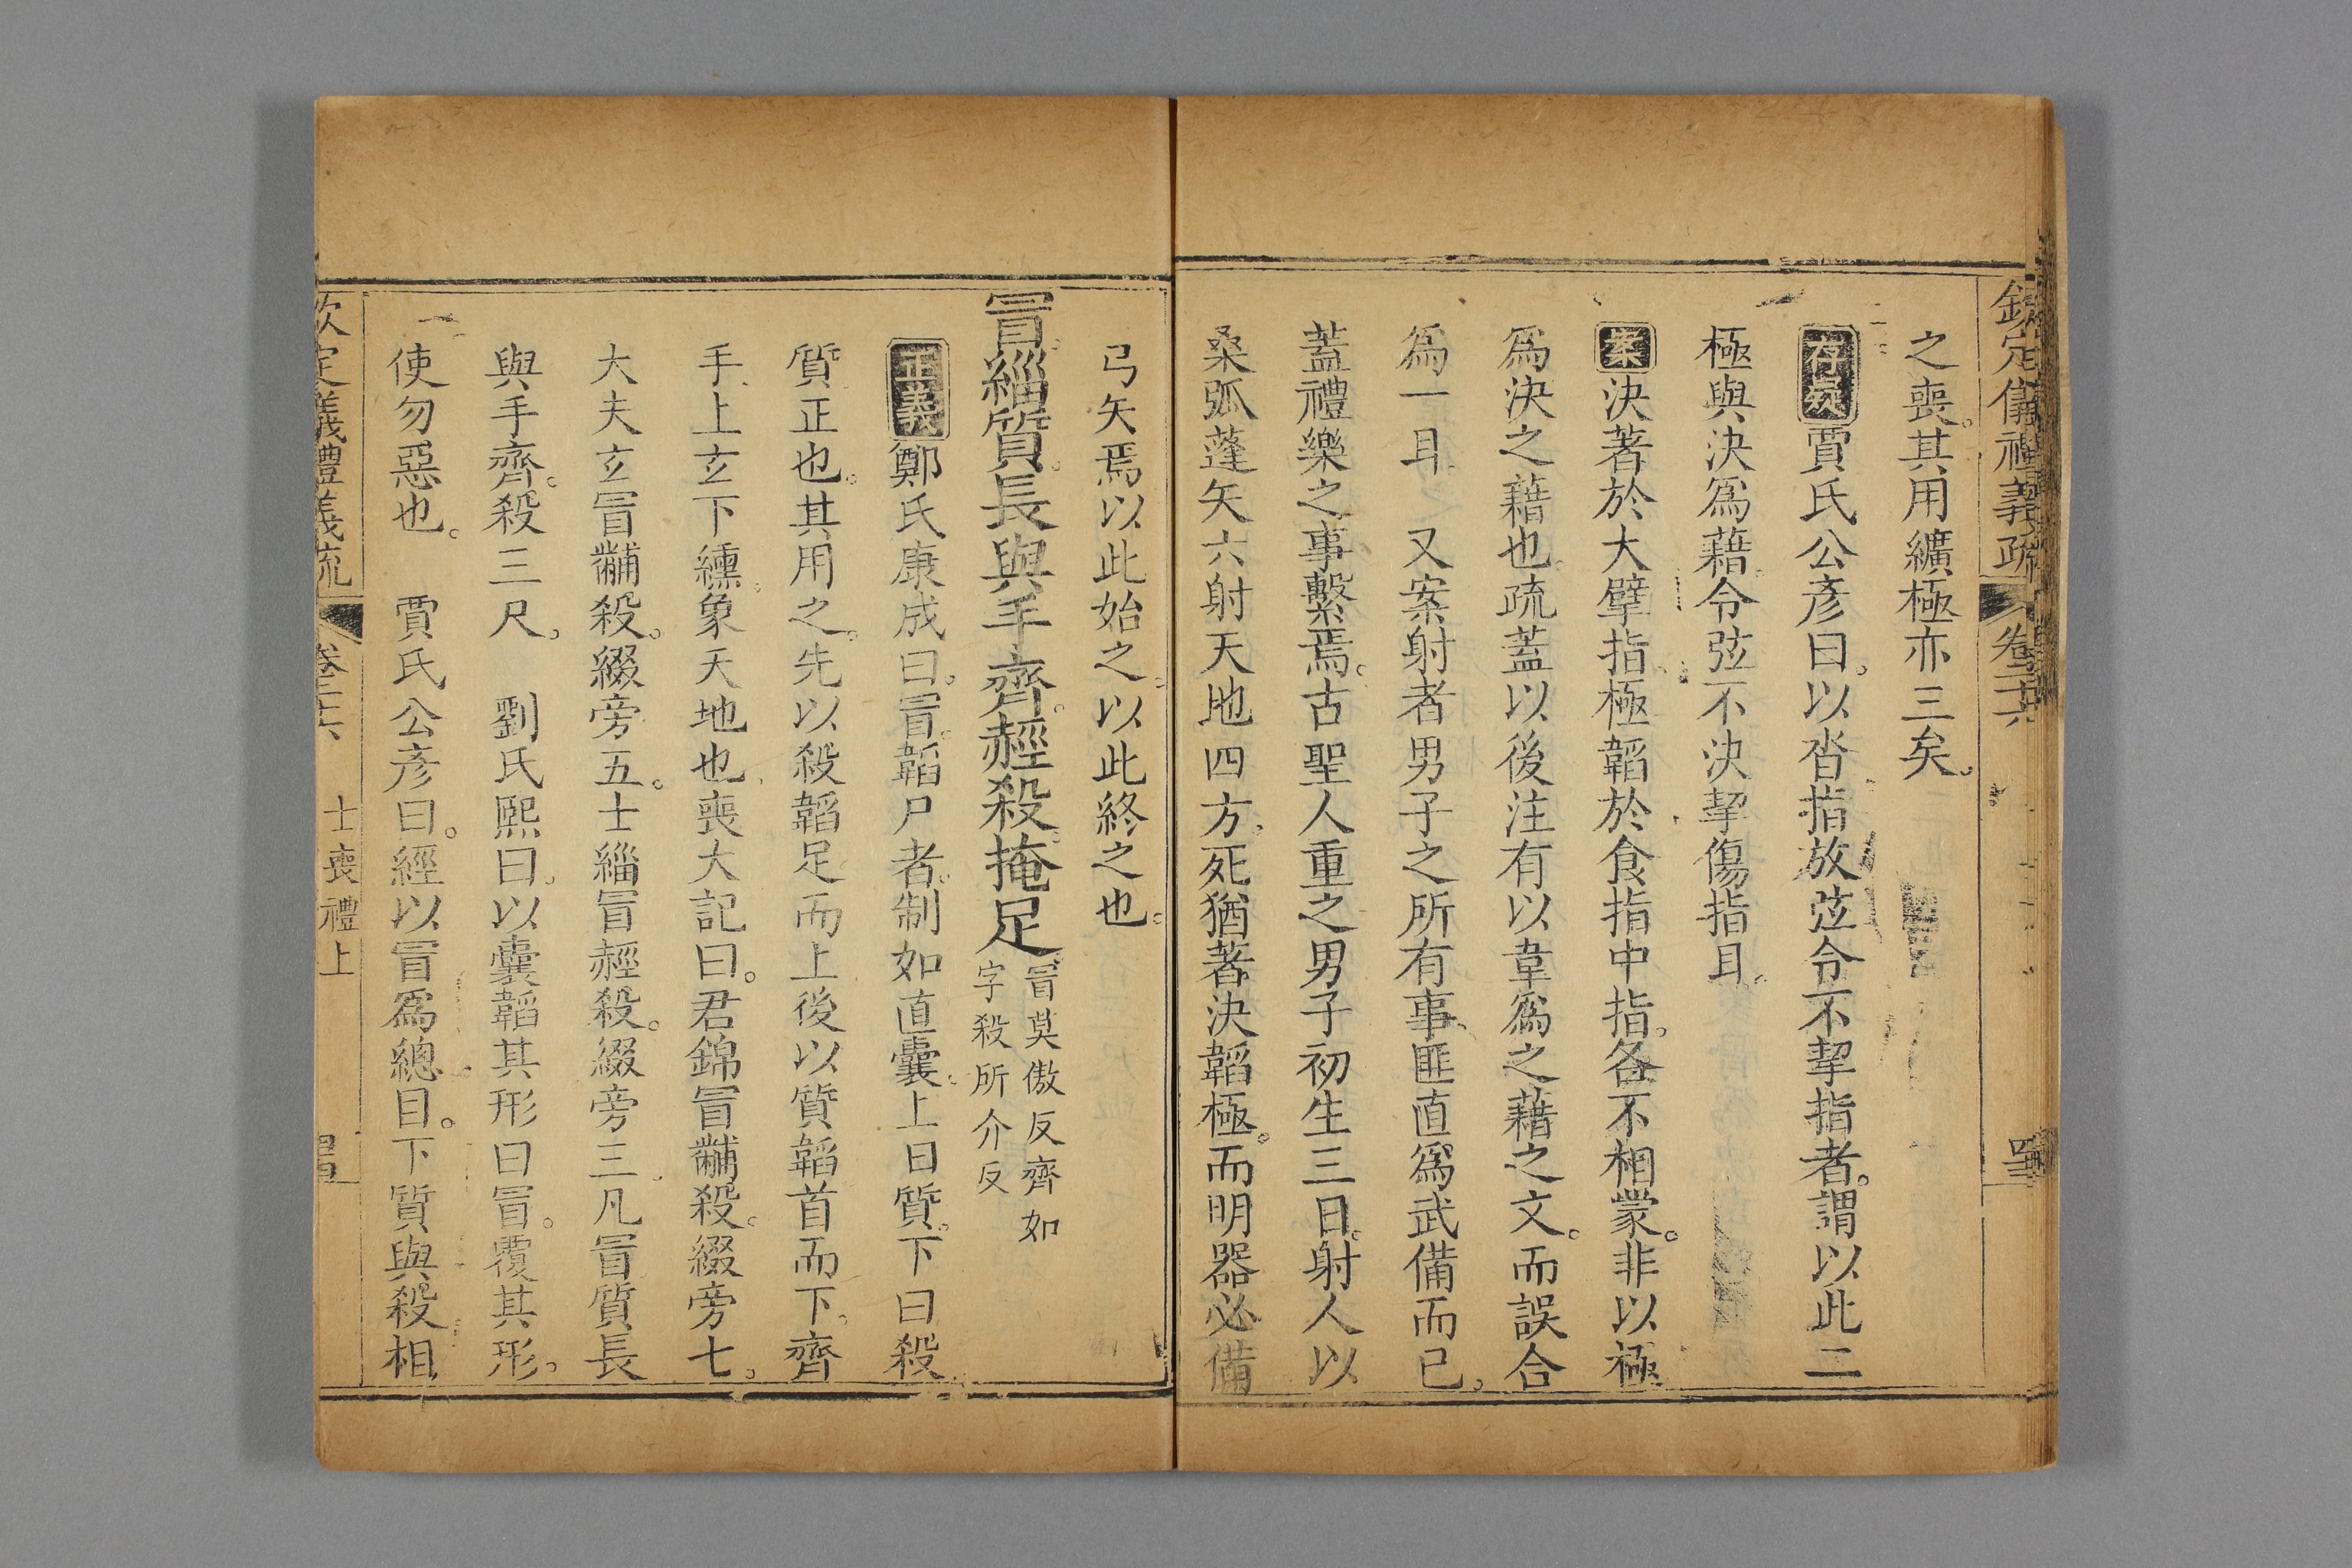 欽定儀禮義疏 卷二十六
之喪其用纊極亦三矣
存疑賈氏公彥曰以沓指放弦令不挈指者謂以此二
極與決爲藉令弦不決挈傷指耳
案決著於大擘指極韜於食指中指各不相蒙非以極
爲決之藉也疏蓋以後注有以韋爲之藉之文而誤合
爲一耳　又案射者男子之所有事匪直爲武備而已
蓋禮樂之事繫焉古聖人重之男子初生三日射人以
桑弧蓬矢六射天地四方死猶著決韜極而明器必備
弓矢焉以此始之以此終之也
冒緇質長與手齊䞓殺掩足冒莫傲反齊如
字殺所介反
正義鄭氏康成曰冒韜尸者制如直囊上曰質下曰殺
質正也其用之先以殺韜足而上後以質韜首而下齊
手上玄下纁象天地也喪大記曰君錦冒黼殺綴旁七
大夫玄冒黼殺綴旁五士緇冒赬殺綴旁三凡冒質長
與手齊殺三尺　劉氏熙曰以囊韜其形曰冒覆其形
使勿惡也　賈氏公彥曰經以冒爲總目下質與殺相
欽定儀禮義疏 卷二十六 士喪禮上